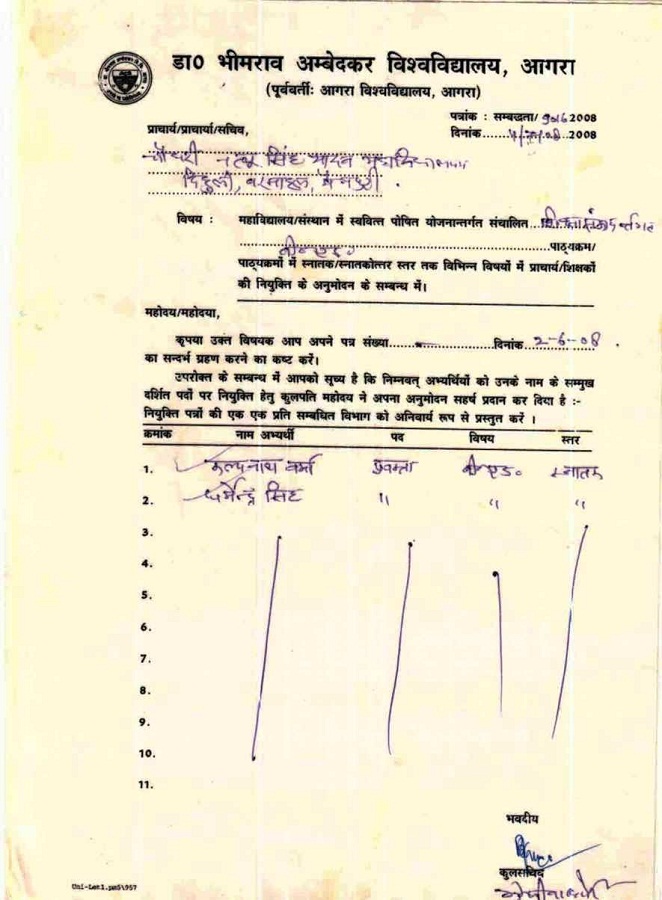 डा0 भीमराव अम्बेदकर विश्वविद्यालय, आगरा
(पूर्ववर्तीः आगरा विश्वविद्यालय, आगरा)
पत्रांक : सम्बद्धता/9016 2008
प्राचार्य/प्राचार्या/सचिव,
दिनांक......4/7/08..2008
चौधरी नत्थू सिंह यादव महाविद्यालय
दिहुली, बरनाहल, मैनपुरी .
विषय : महाविद्यालय/संस्थान में स्ववित्त पोषित योजनान्तर्गत संचालित...शिक्षा संकाय
बी०एड० पाठ्यक्रम/
पाठ्यक्रमों में स्नातक/स्नातकोत्तर स्तर तक विभिन्न विषयों में प्राचार्य/शिक्षकों
की नियुक्ति के अनुमोदन के सम्बन्ध में।
महोदय/महोदया,
कृपया उक्त विषयक आप अपने पत्र संख्या............दिनांक 2-6-08 .
का सन्दर्भ ग्रहण करने का कष्ट करें।
उपरोक्त के सम्बन्ध में आपको सूच्य है कि निम्नवत् अभ्यर्थियों को उनके नाम के सम्मुख
दर्शित पदों पर नियुक्ति हेतु कुलपति महोदय ने अपना अनुमोदन सहर्ष प्रदान कर दिया है :-
नियुक्ति पत्रों की एक एक प्रति सम्बधित विभाग को अनिवार्य रूप से प्रस्तुत करें ।
क्रमांक नाम अभ्यर्थी पद विषय स्तर
1. कल्पनाथ वर्मा प्रवक्ता बी०एड० स्नातक
2. धर्मेन्द्र सिंह " " "
3.
4.
5.
6.
7.
8.
9.
10.
11.
भवदीय
कुलसचिव
Uni-Let1.pm5\957